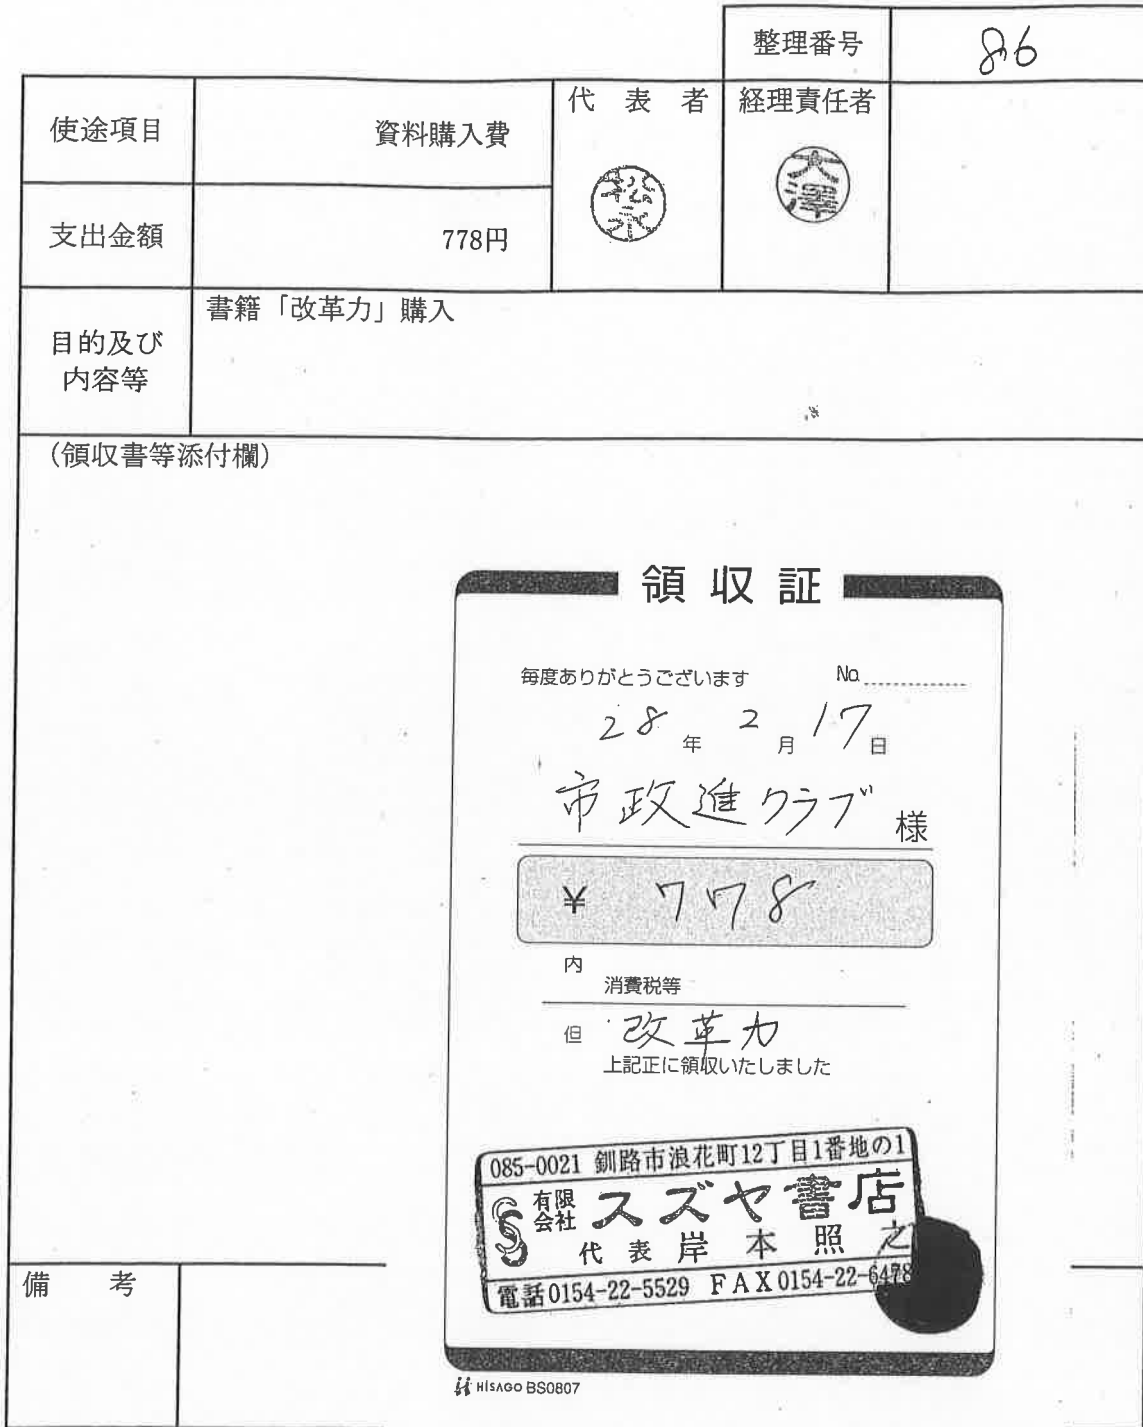 整理番号 86
使途項目 資料購入費 代表者 経理責任者
松永 大澤
支出金額 778円
目的及び内容等 書籍「改革力」購入
(領収書等添付欄)
領収証
毎度ありがとうございます No.
28年 2月 17日
市政進クラブ 様
¥ 778
内 消費税等
但 改革力
上記正に領収いたしました
085-0021 釧路市浪花町12丁目1番地の1
有限会社 スズヤ書店
代表 岸本照之
電話0154-22-5529 FAX0154-22-6478
備考
HISAGO BS0807